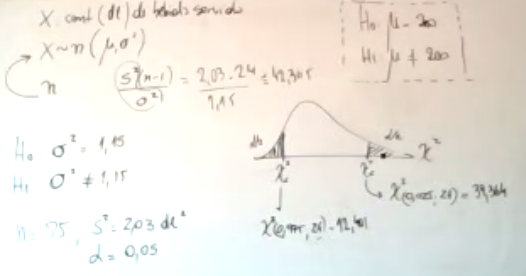 X. cant (dl) de bebida servida
X ~ n (μ, σ²)
n
S²(n-1) / σ² = 2,03 . 24 / 1,15 = 42,365
H₀ μ = 200
H₁ μ ≠ 200
H₀ σ² = 1,15
H₁ σ² ≠ 1,15
n = 25, S² = 2,03 dl²
α = 0,05
α/2
α/2
χ²
χ²c
χ²c
χ²(0,025, 24) = 39,364
χ²(0,975, 24) = 12,401